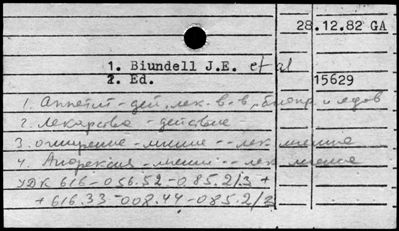 28.12.82 GA
1. Biundell J.E. et al
2. Ed.
15629
1. Аппетит - дей. лек. в-в, и ядов
2. Лекарства - действие
3. Ожирение - лечение -- лек
4. Анорексия - лечение -- лек
УДК 616-056.52-085.2/3 +
+ 616.33-008.44-085.2/3